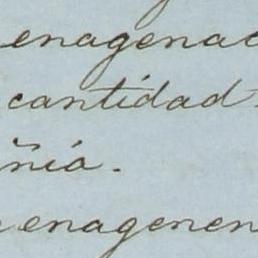 enagenac
cantidad
ñia.
enagenen